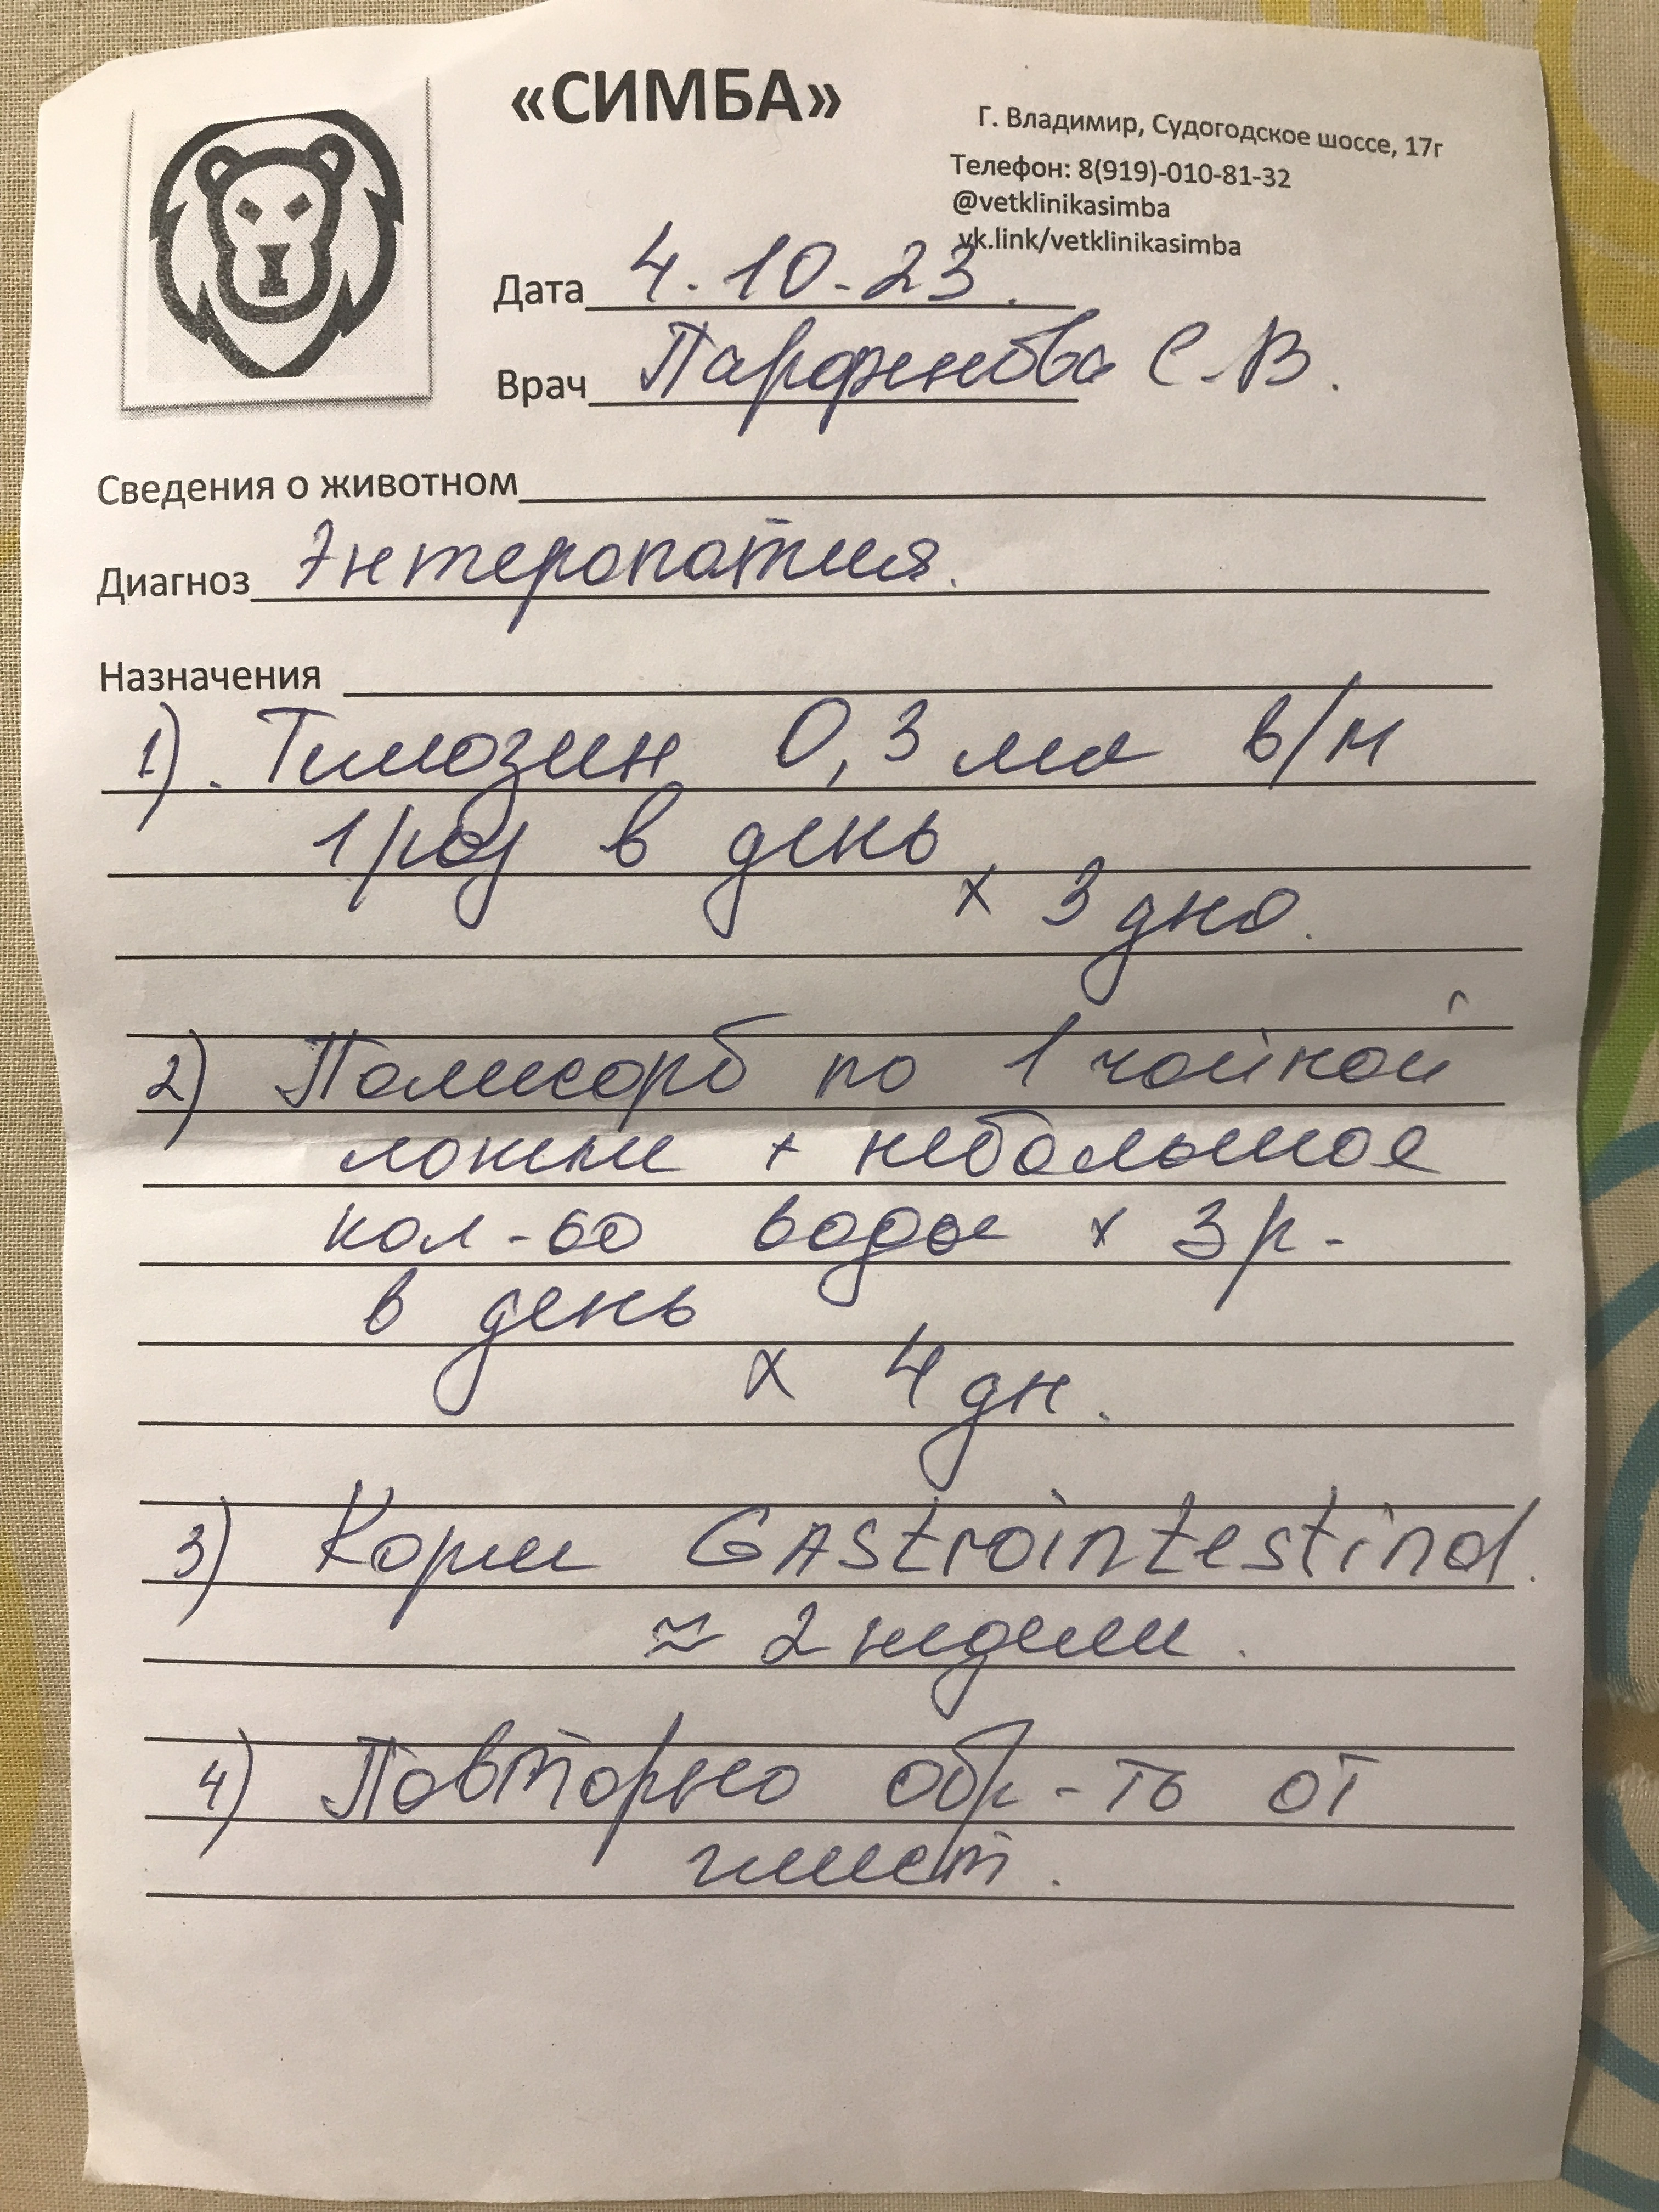 «СИМБА»
Г. Владимир, Судогодское шоссе, 17г
Телефон: 8(919)-010-81-32
@vetklinikasimba
vk.link/vetklinikasimba
Дата 4.10.23.
Врач Парфенова С.В.
Сведения о животном
Диагноз Энтеропатия.
Назначения
1). Тимозин 0,3 мл в/м
1 раз в день
х 3 дня.
2) Полисорб по 1 чайной
ложки + небольшое
кол-во воды х 3 р.
в день
х 4 дн.
3) Корм GAstrointestinal.
≈ 2 недели.
4) Повторно обр-ть от
глист.